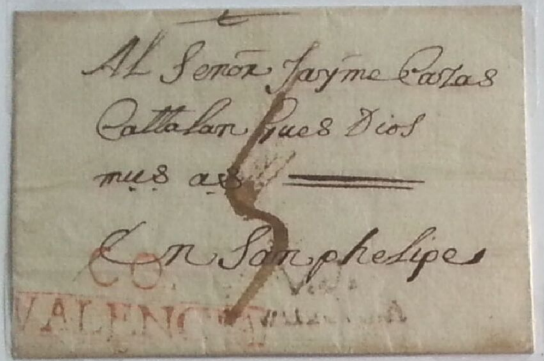 Al Señor Jayme Cazas
Cattalan Gues Dios
mus as
En San phelipe
5
CO.
VALENCIA